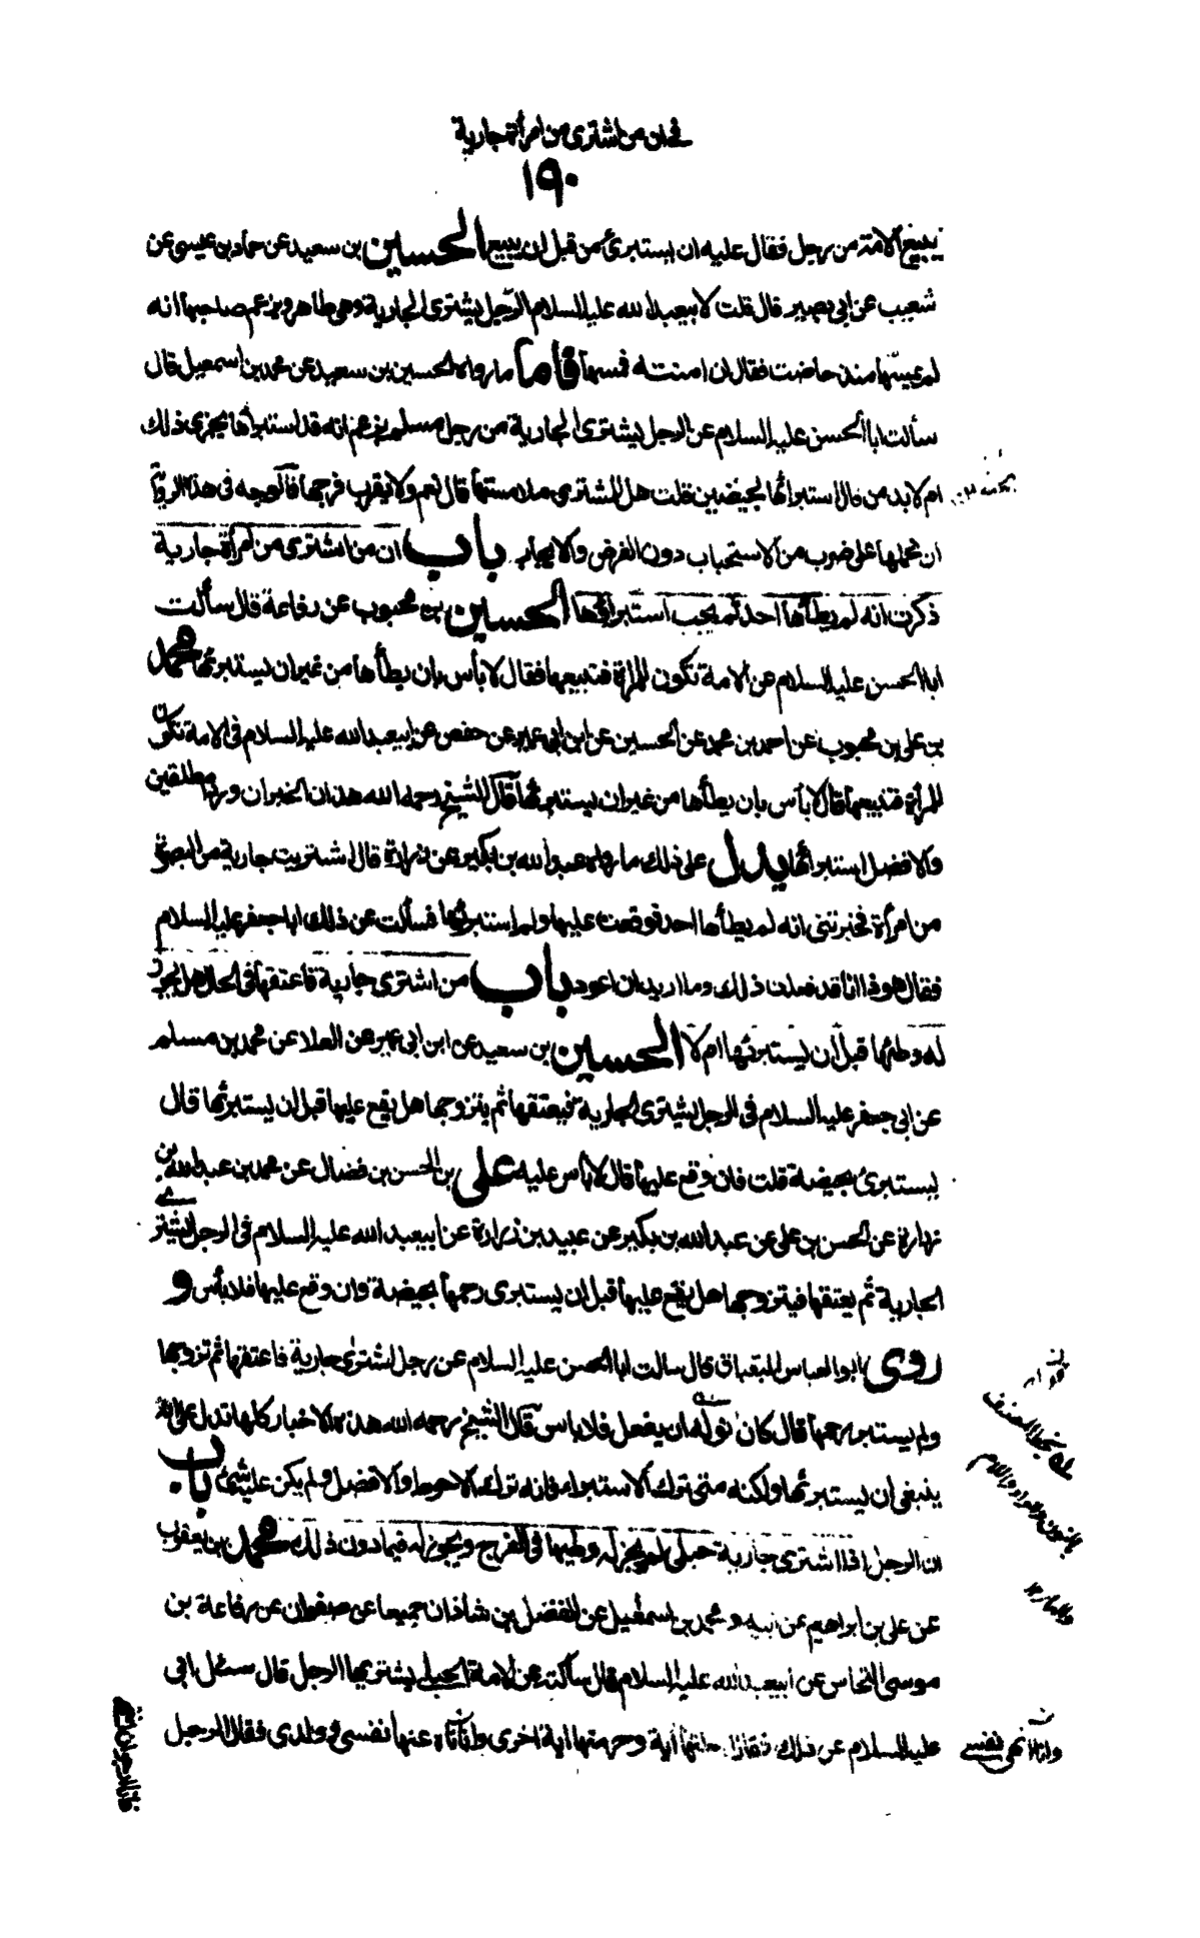 في ان من اشترى من امرأة جارية
١٩٠
يبيع الامة من رجل فقال عليه ان يستبرئ من قبل ان يبيع الحسين بن سعيد عن حماد بن عيسى عن
شعيب عن ابي بصير قال قلت لابيعبد الله عليه السلام الرجل يشترى الجارية وهي طاهر ويزعم صاحبها انه
لم يمسها منذ حاضت فقال ان امنته فمسها فاما ما رواه الحسين بن سعيد عن محمد بن اسمعيل قال
سألت ابا الحسن عليه السلام عن الرجل يشترى الجارية من رجل مسلم يزعم انه قد استبرأها يجزى ذلك
ام لا بد من قال استبرائها بحيضتين قلت هل للمشترى ملامستها قال نعم ولا يقرب فرجها فالوجه في هذه الرواية
ان نحملها على ضرب من الاستحباب دون الفرض والايجاب باب ان من اشترى من امرأة جارية
ذكرت انه لم يطأها احد لم يجب استبراؤها الحسين بن محبوب عن رفاعة قال سألت
ابا الحسن عليه السلام عن الامة تكون للمرأة فتبيعها فقال لا بأس بان يطأها من غير ان يستبرئها محمد
بن علي بن محبوب عن احمد بن محمد عن الحسين عن ابن ابي عمير عن حفص عن ابيعبد الله عليه السلام في الامة تكون
للمرأة فتبيعها قال لا بأس بان يطأها من غير ان يستبرئها قال الشيخ رحمه الله هذان الخبران وردا مطلقين
والافضل استبرائها يدل على ذلك ما رواه عبد الله بن بكير عن زرارة قال اشتريت جارية من البصرة
من امرأة فخبرتني انه لم يطأها احد فوقعت عليها ولم استبرئها فسألت عن ذلك ابا جعفر عليه السلام
فقال هو ذا انا قد فعلت ذلك وما اريد ان اعود باب من اشترى جارية فاعتقها في الحال هل يجوز
له وطئها قبل ان يستبرئها ام لا الحسين بن سعيد عن ابن ابي عمير عن العلا عن محمد بن مسلم
عن ابي جعفر عليه السلام في الرجل يشترى الجارية فيعتقها ثم يتزوجها هل يقع عليها قبل ان يستبرئها قال
يستبرئ بحيضة قلت فان وقع عليها قال لا بأس عليه على بن الحسن بن فضال عن محمد بن عبد الله بن
زرارة عن الحسن بن علي عن عبد الله بن بكير عن عبيد بن زرارة عن ابيعبد الله عليه السلام في الرجل يشترى
الجارية ثم يعتقها فيتزوجها هل يقع عليها قبل ان يستبرى رحمها بحيضة وان وقع عليها فلا بأس و
روى ابو العباس البقباق قال سالت ابا الحسن عليه السلام عن رجل اشترى جارية فاعتقها ثم تزوجها
ولم يستبرء رحمها قال كان نوله ان يفعل فلا باس قال الشيخ رحمه الله هذه الاخبار كلها تدل على انه
ينبغي ان يستبرئها ولكنه متى ترك الاستبراء فانه ترك الاحوط والافضل ولم يكن عليه شئ باب
ان الرجل اذا اشترى جارية حبلى لم يجز له وطيها في الفرج ويجوز له فيما دون ذلك محمد بن يعقوب
عن علي بن ابراهيم عن ابيه ومحمد بن اسمعيل عن الفضل بن شاذان جميعا عن صفوان عن رفاعة بن
موسى النخاس عن ابيعبد الله عليه السلام قال سألته عن الامة الحبلى يشتريها الرجل قال سئل ابي
عليه السلام عن ذلك فقال احلتها آية وحرمتها اية اخرى وانا ناه عنها نفسي وولدي فقال الرجل
وانا انهى نفسي